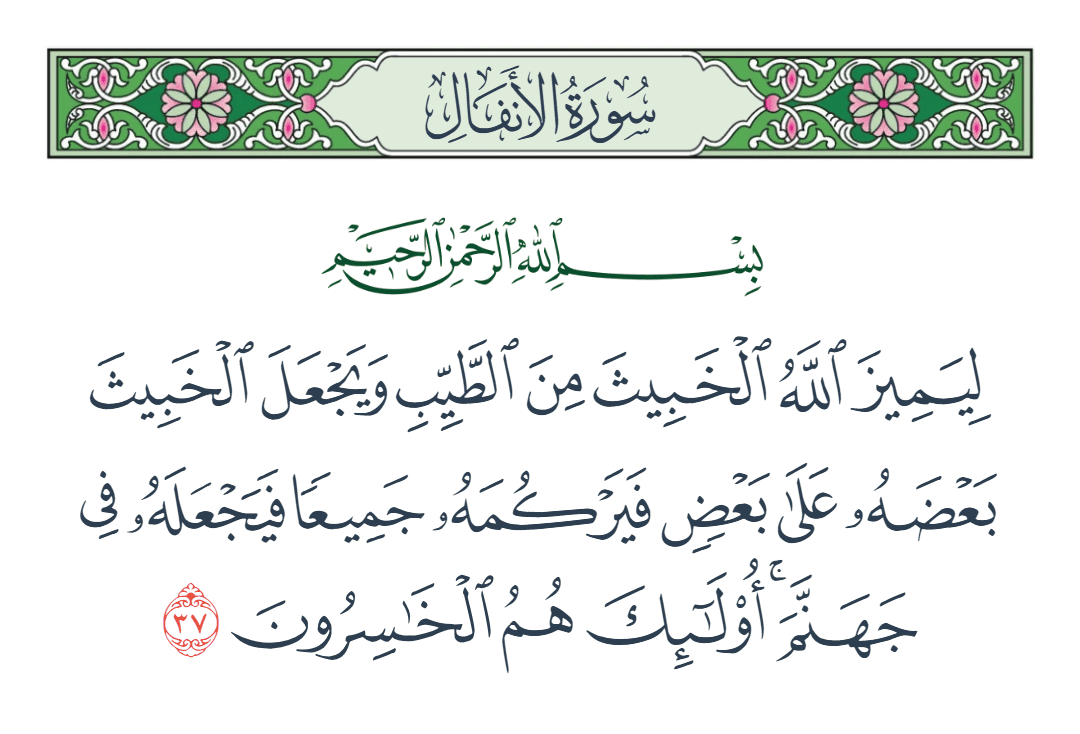 سُورَةُ الأَنفَالِ
بِسْمِ ٱللَّهِ ٱلرَّحْمَٰنِ ٱلرَّحِيمِ
لِيَمِيزَ ٱللَّهُ ٱلْخَبِيثَ مِنَ ٱلطَّيِّبِ وَيَجْعَلَ ٱلْخَبِيثَ
بَعْضَهُۥ عَلَىٰ بَعْضٍ فَيَرْكُمَهُۥ جَمِيعًا فَيَجْعَلَهُۥ فِى
جَهَنَّمَ ۚ أُو۟لَٰٓئِكَ هُمُ ٱلْخَٰسِرُونَ ٣٧